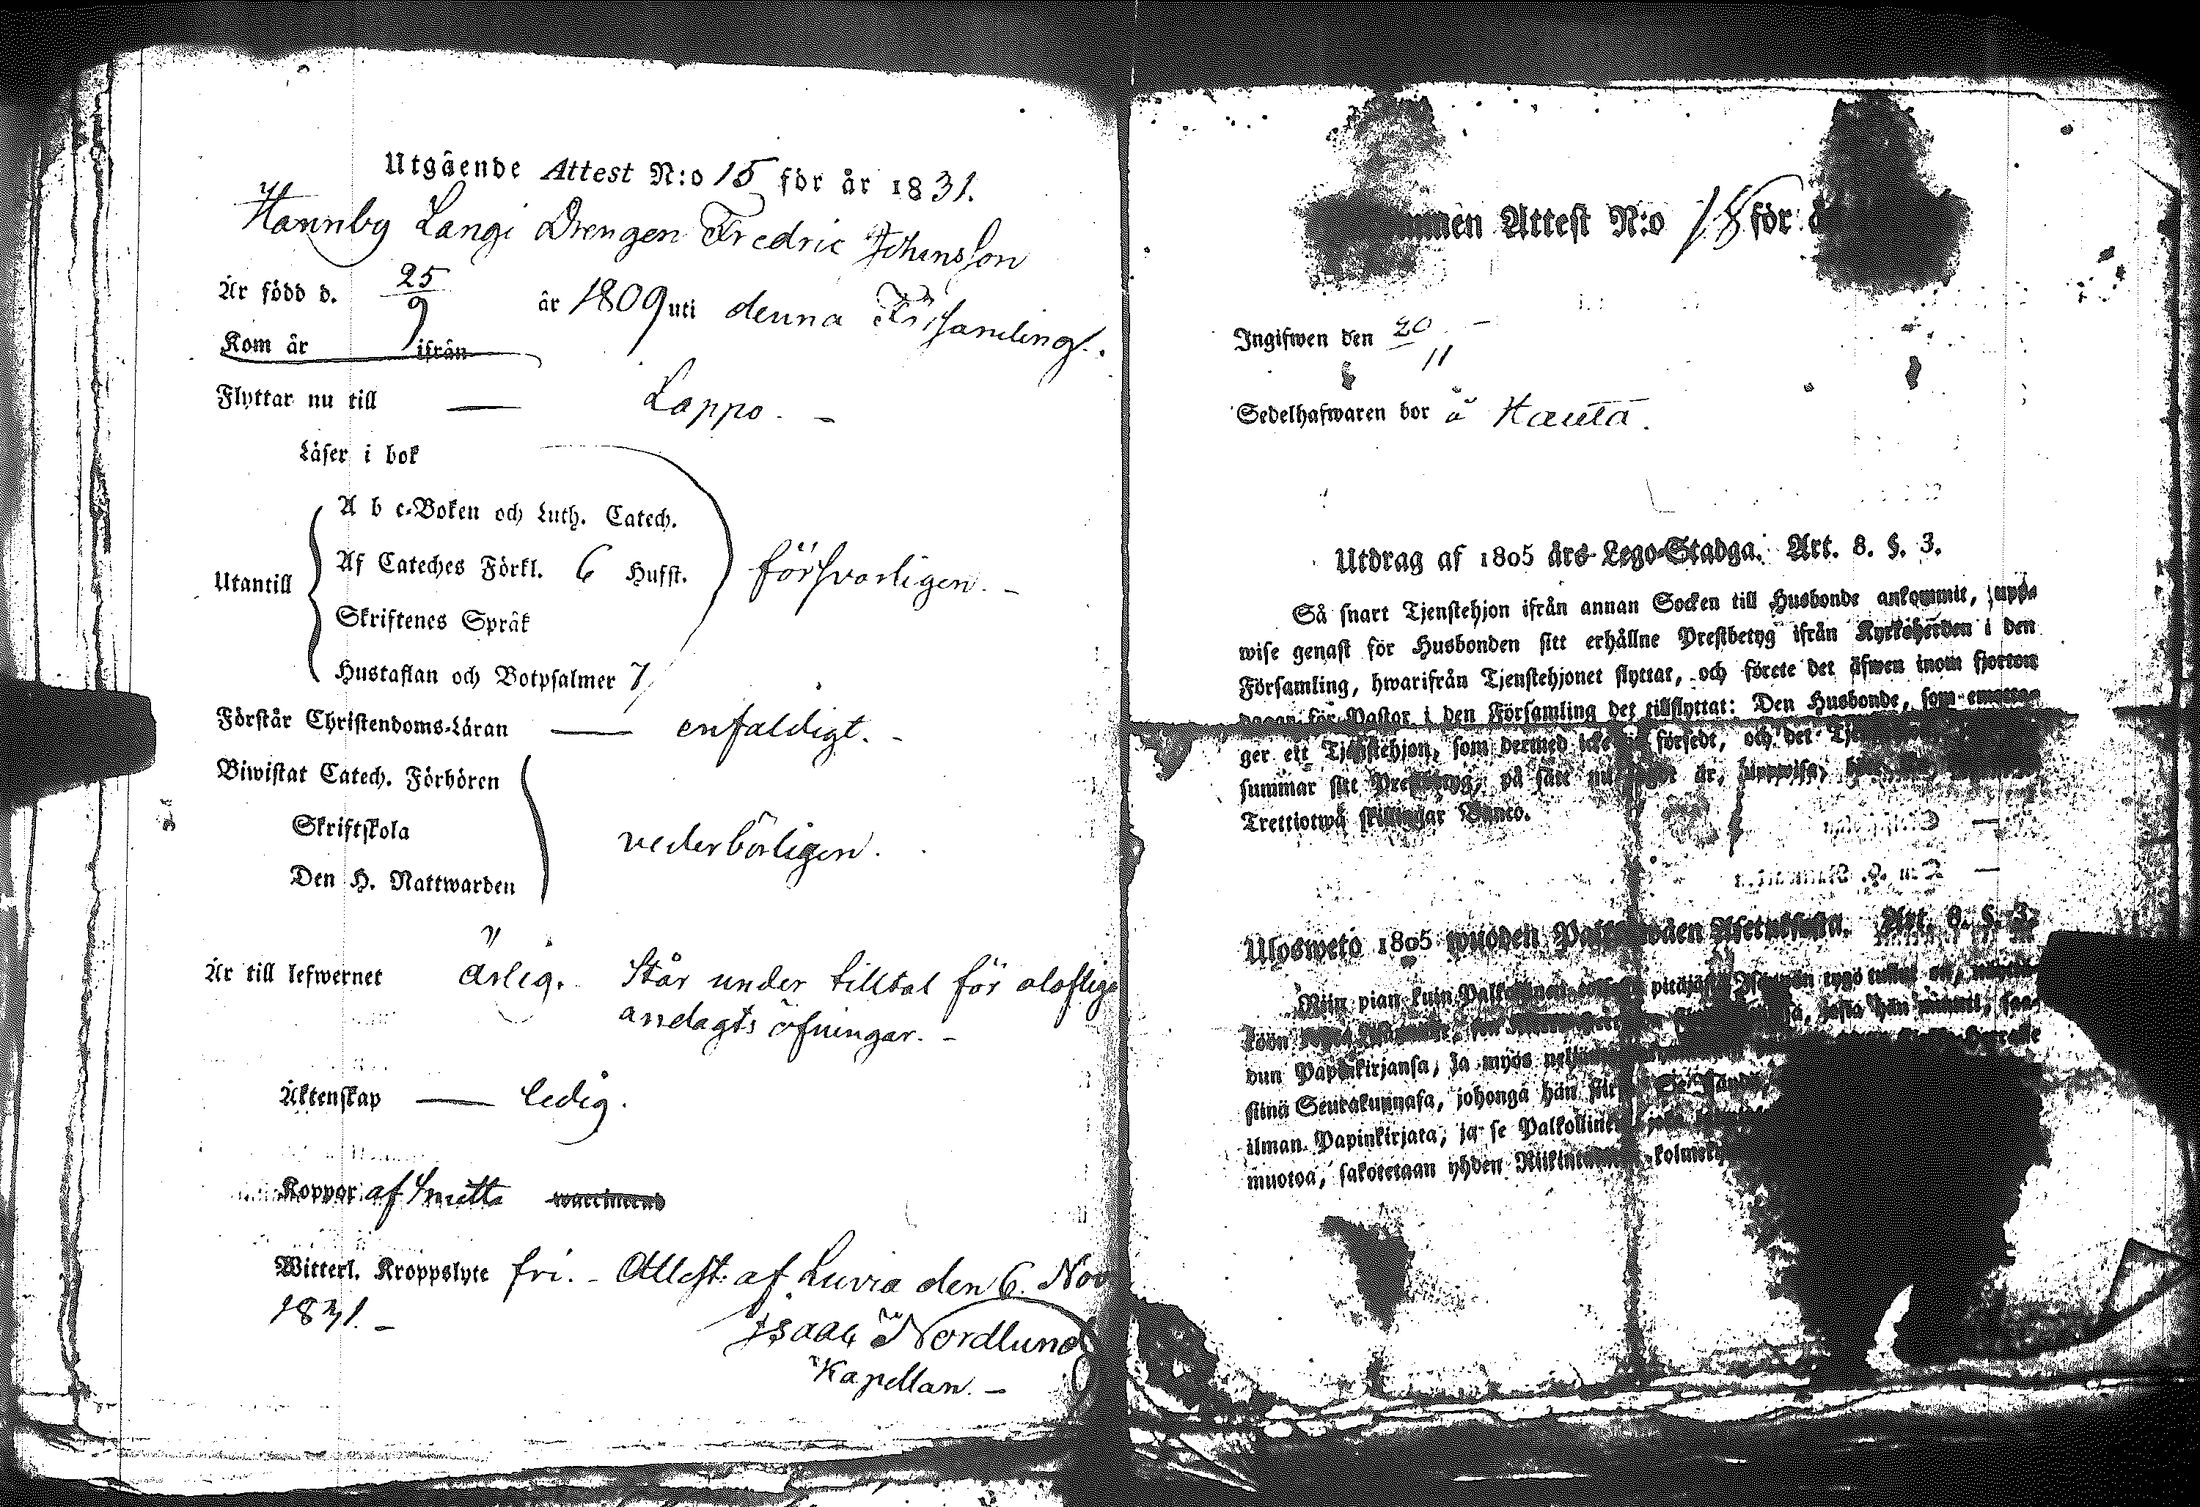 Utgående Attest N:o 15 för år 1831.
Hannby Langi Drengen Fredric Johansson
Är född d. 25/9 år 1809 uti denna Församling.
Kom år ifrån
Flyttar nu till — Lappo. –
Läser i bok
A b c-Boken och Luth. Catech.
Af Cateches Förkl. 6 Husst.
Utantill försvarligen. –
Skriftenes Språk
Hustaflan och Botpsalmer 7
Förstår Christendoms-Läran — enfaldigt. –
Biwistat Catech. Förhören
Skriftskola
vederbörligen.
Den H. Nattwarden
Är till lefwernet ärlig. Står under tilltal för olaflige
andagts öfningar. –
Äktenskap — ledig.
Koppor af Smitta waccinerad
Witterl. Kroppslyte fri. – Attest. af Luvia den 6. Nov
1831. –
Isaac Nordlund
Kapellan. –
Attest N:o 18 för
Ingifwen den 20/11 –
Sedelhafwaren bor å Hauta.
Utdrag af 1805 års Lego-Stadga. Art. 8. §. 3.
Så snart Tjenstehjon ifrån annan Socken till Husbonde ankommit, upp-
wise genast för Husbonden sitt erhållne Prestbetyg ifrån Kyrkoherden i den
Församling, hwarifrån Tjenstehjonet flyttat, och förete det äfwen inom fjorton
dagar för Pastor i den Församling det tillflyttat: Den Husbonde, som emotta-
ger ett Tjenstehjon, som dermed icke försedt, och det
summar sitt Prestbetyg, på sätt är, uppwisa,
Trettiotwå skillingar Banco.
Ulosweto 1805 wuoden Art. 8. §. 3.
Niin pian kuin
dun Papinkirjansa, ja myös
stinä Seurakunnasa, johonga hän
ilman Papinkirjata, ja se Palkollinen
muotoa, sakotetaan yhden